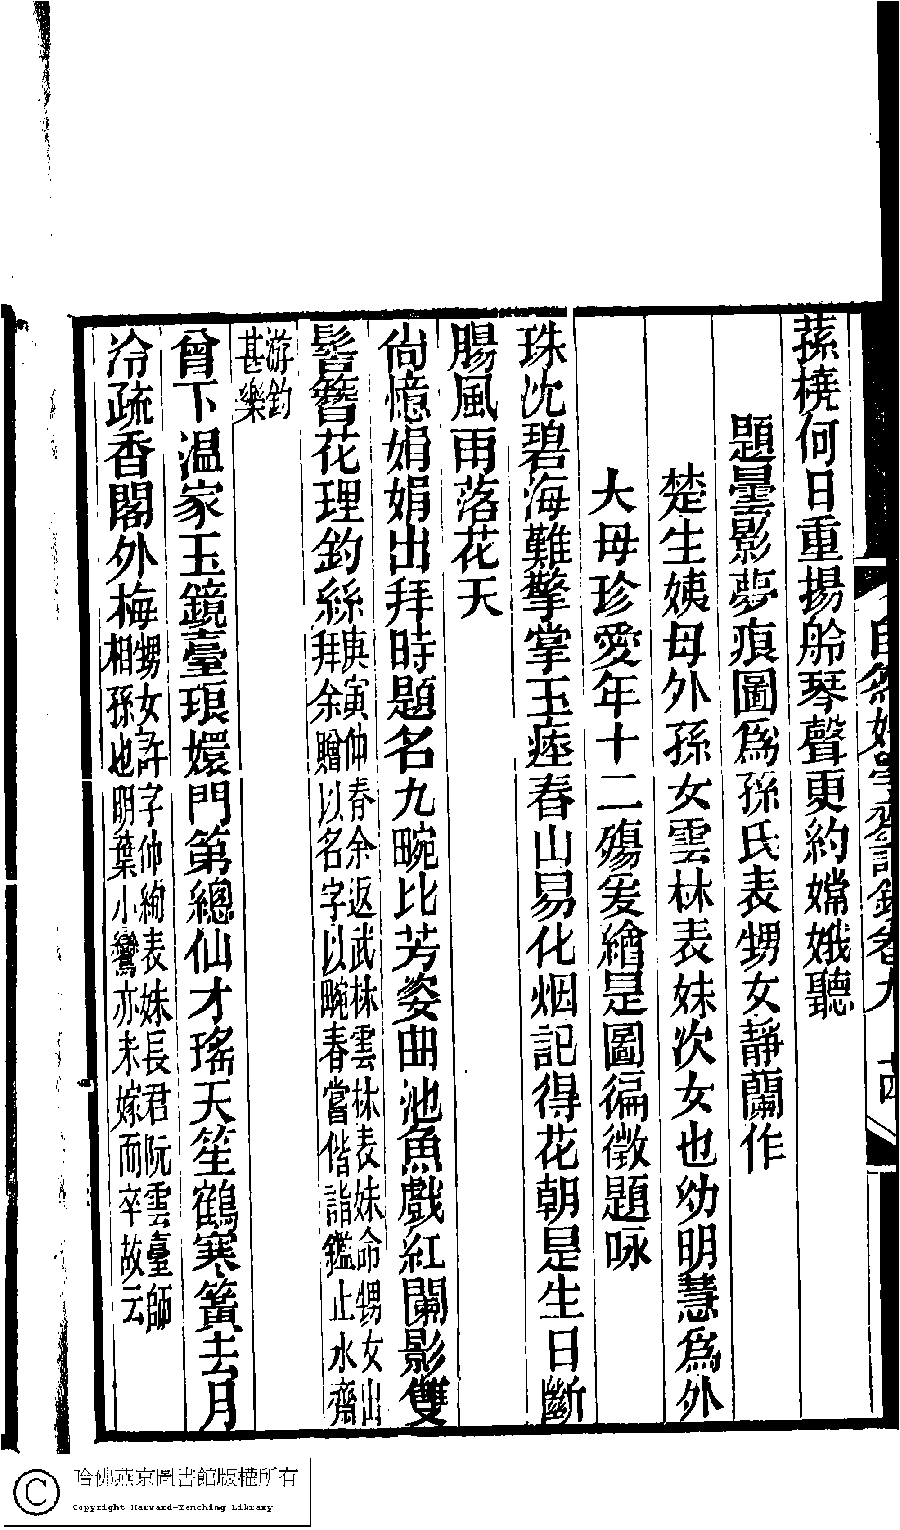 蓀橈何日重揚舲琴聲更約嫦娥聽
題曇影夢痕圖爲孫氏表甥女靜蘭作
楚生姨母外孫女雲林表妹次女也幼明慧爲外
大母珍愛年十二殤爰繪是圖徧徵題咏
珠沈碧海難擎掌玉瘞春山易化烟記得花朝是生日斷
腸風雨落花天
尙憶娟娟出拜時題名九畹比芳姿曲池魚戲紅闌影雙
髻簪花理釣絲庚寅仲春余返武林雲林表妹命甥女出
拜余贈以名字以畹春嘗偕詣鑑止水齋
游釣
甚樂
曾下温家玉鏡臺琅嬛門第總仙才瑤天笙鶴寒簧去月
冷疏香閣外梅甥女許字仲絢表妹長君阮雲臺師
相孫也明葉小鸞亦未嫁而卒故云
自然好學齋詩鈔卷九
十四
哈佛燕京圖書館版權所有
Copyright Harvard-Yenching Library